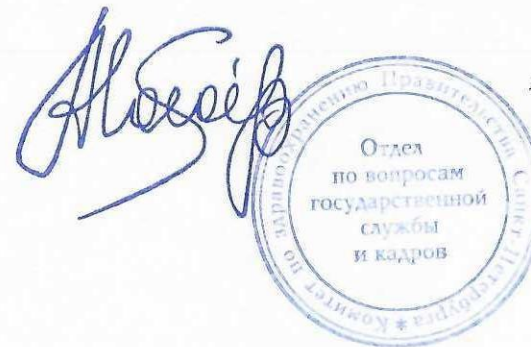 Комитет по здравоохранению Правительства Санкт-Петербурга *
Отдел
по вопросам
государственной
службы
и кадров